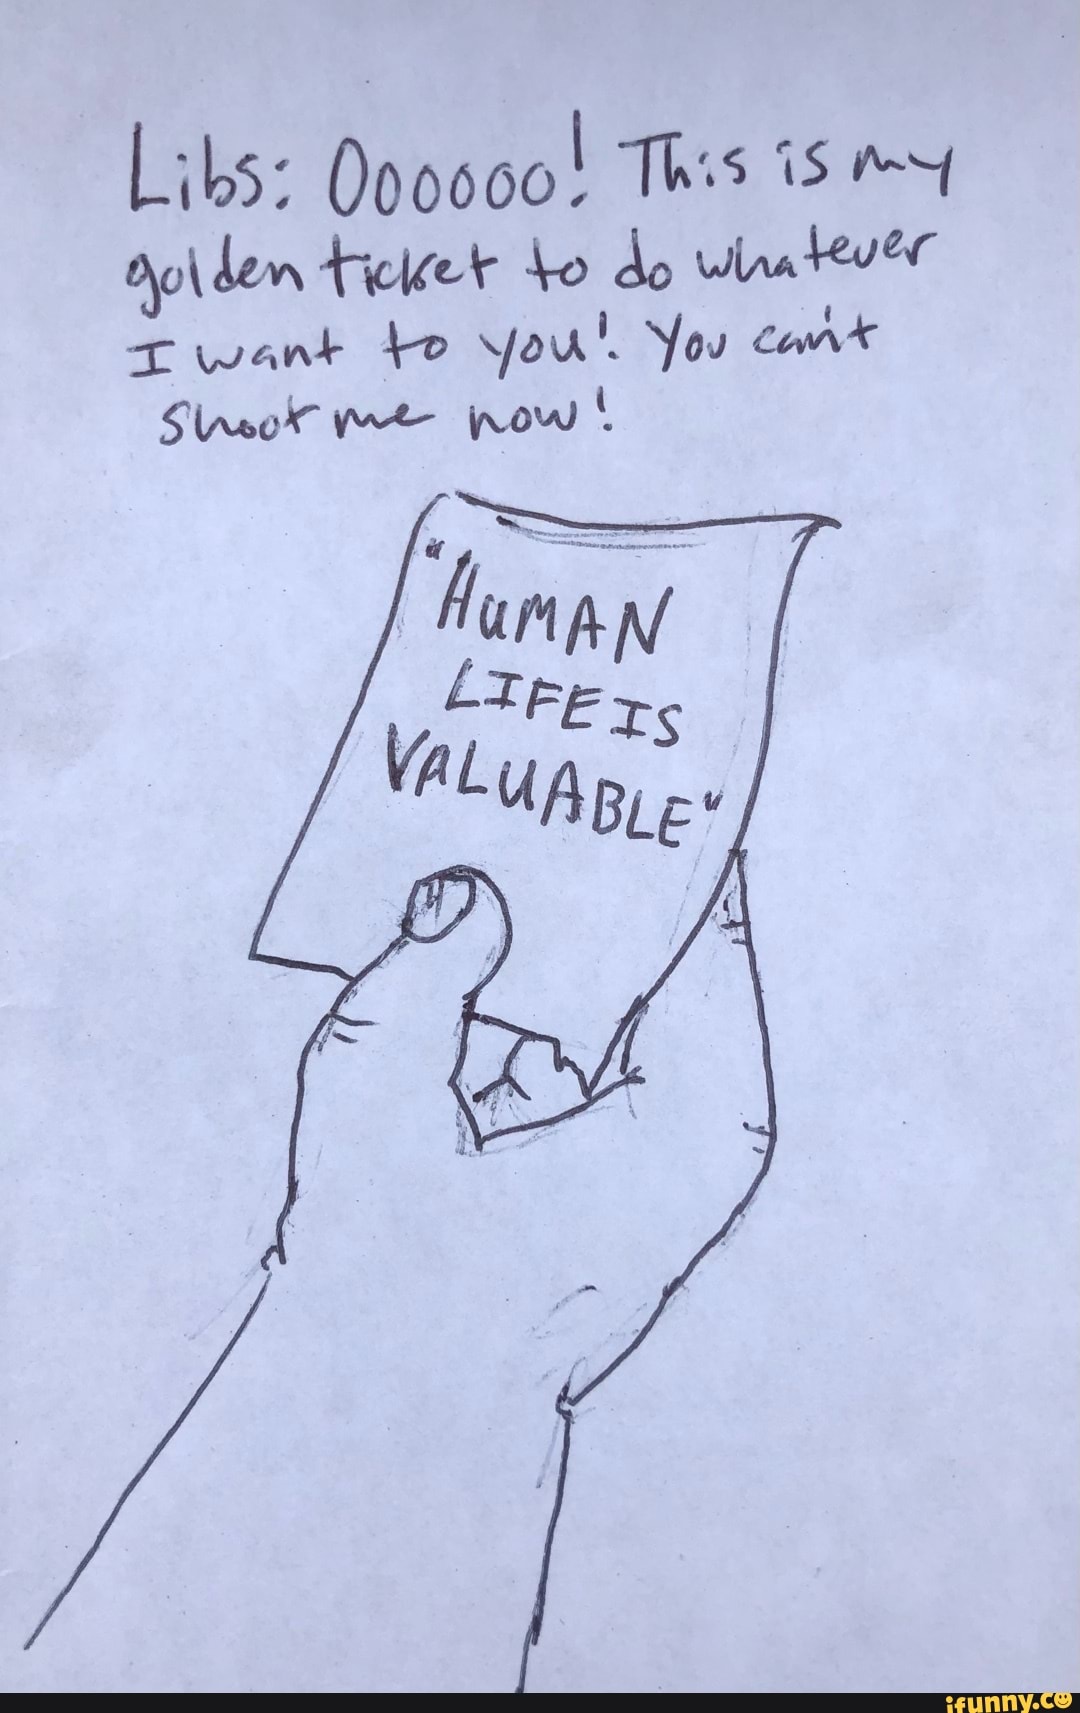 Libs: Oooooo! This is my
golden ticket to do whatever
I want to you! You can't
shoot me now!
"HUMAN
LIFE IS
VALUABLE"
ifunny.co